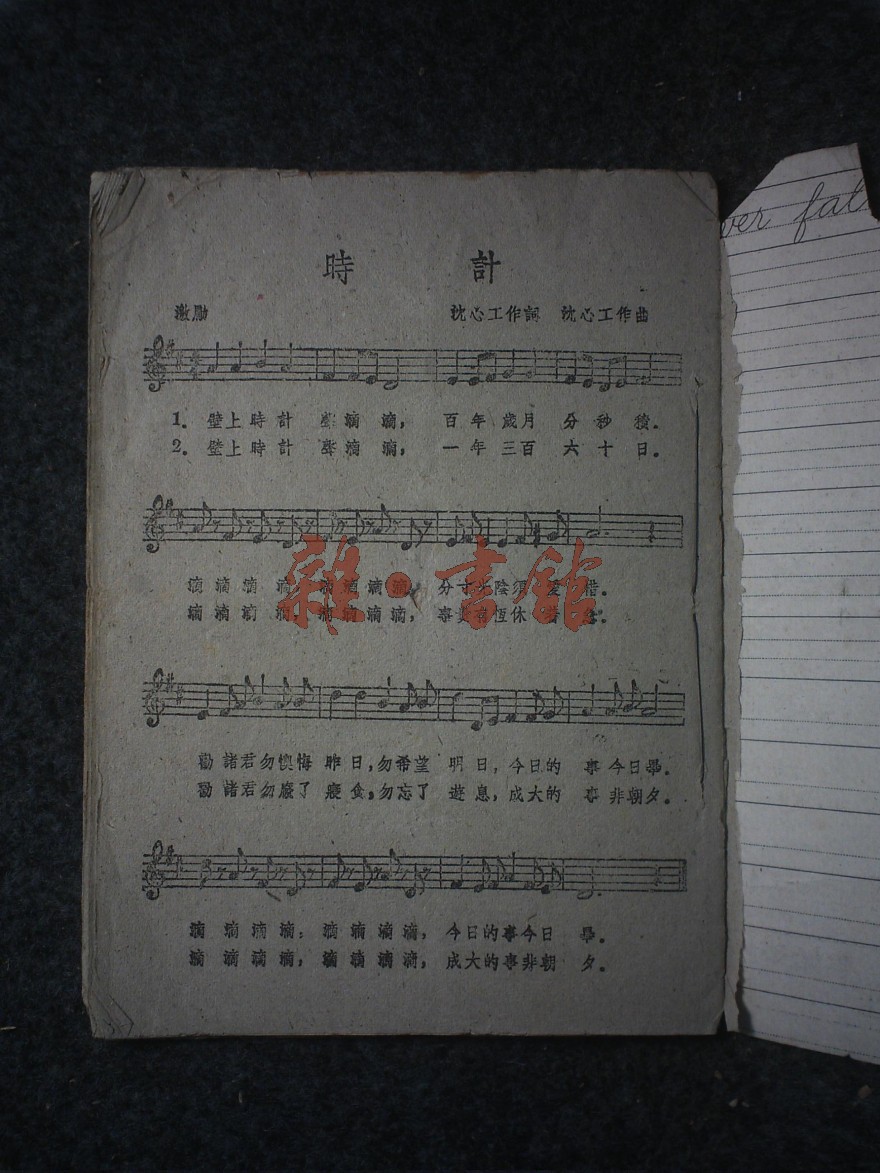 時 計
激勵 沈心工作詞 沈心工作曲
1. 壁上時計 聲滴滴, 百年歲月 分秒積.
2. 壁上時計 聲滴滴, 一年三百 六十日.
滴滴滴滴, 滴滴滴滴, 分寸光陰須愛惜.
滴滴滴滴, 滴滴滴滴, 事貴有恆休
勸諸君勿懊悔昨日,勿希望 明日,今日的 事今日畢.
勸諸君勿廢了寢食,勿忘了 遊息,成大的 事非朝夕.
滴滴滴滴, 滴滴滴滴, 今日的事今日 畢.
滴滴滴滴, 滴滴滴滴, 成大的事非朝 夕.
雜·書館
ver fal